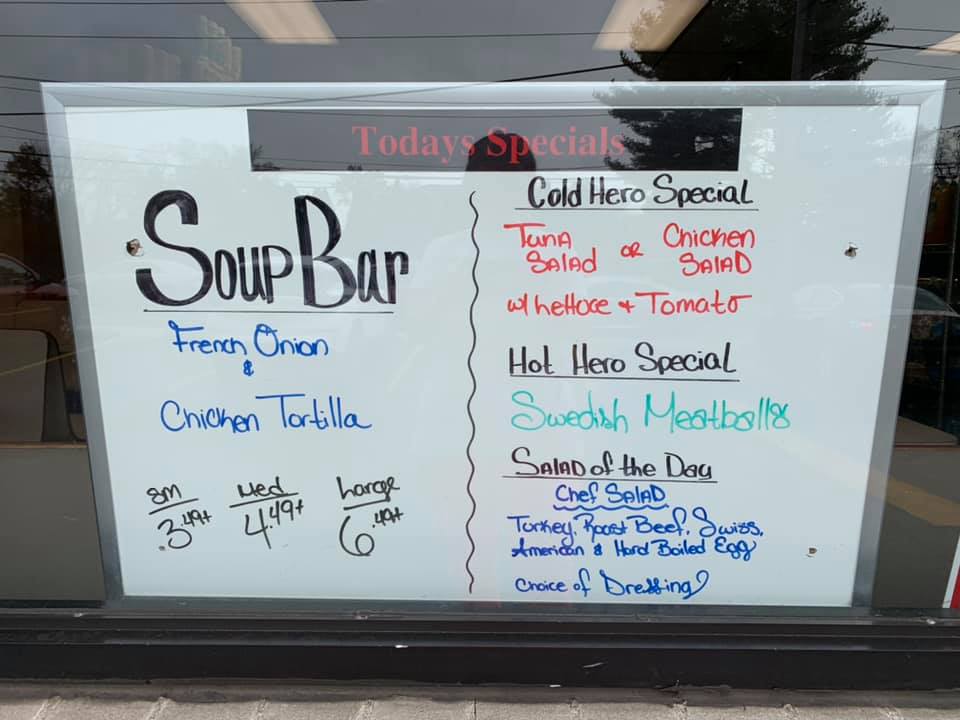 Todays Specials
Soup Bar
French Onion
&
Chicken Tortilla
Sm Med Large
3.49+ 4.49+ 6.49+
Cold Hero Special
Tuna Salad or Chicken Salad
w/ Lettuce + Tomato
Hot Hero Special
Swedish Meatballs
Salad of the Day
Chef Salad
Turkey, Roast Beef, Swiss,
American & Hard Boiled Egg
Choice of Dressing